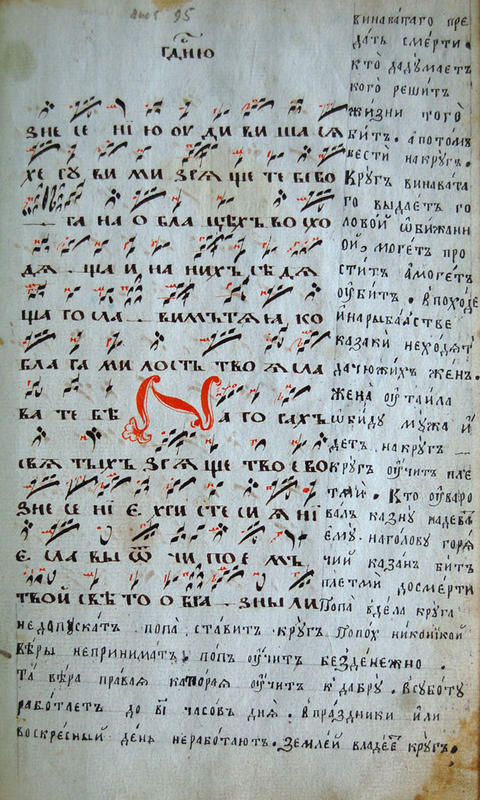 гдⷭ҇ню
зне се нї ю оу ди ви ша ся
хе ру ви ми зря ще те бе бо
га на о бла цѣхъ во схо
дя ща и на нихъ сѣ дя
ща го сла вимътя на ко
бла га ми лость тво я сла
ва те бѣ На го гахъ
свя тыхъ зря ще тво е во
зне се нї є хги сте си я нї
є сла вы ѿ чи по е мъ
твой свѣ то о бра зны ли
винаватаго пре
дать смерти.
кто̀ дадꙋмаетъ
кого решитъ
жизни того̀
бит. апотомъ
вести накругъ.
Кругъ винавата
го выдаетъ го
ловой ѡбижанн
ой, можетъ про
ститъ аможетъ
оубит. впоходе
инарыбалстве
казаки неходятъ
дачюжихъ женъ.
жена оутаила
ѡбиду мужа и
детъ накругъ
кругъ оучит пле
тми. Кто оуваро
валъ казну надева
ему. наголову горя
чий казанъ бит
плетми досмерти
Попа вдела круга
недопускат попа, ставит кругъ Попох никонїкой
вѣры непринимать, попъ оучит безденежно.
Та вѣра правая каторая оучит кдабру. Всуботу
работаетъ до вї часовъ дня. впраздники или
воскресный день неработаютъ. землей владеетъ кругъ.